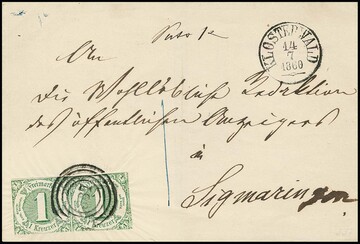 KLOSTERWALD
14
7
1860
An
Die Wohllöbliche Redaktion
des öffentlichen Anzeigers
in
Sigmaringen
Freimarke
1
1 Kreuzer